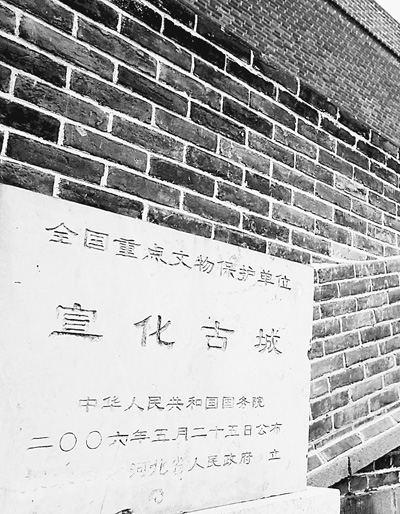 全国重点文物保护单位
宣化古城
中华人民共和国国务院
二〇〇六年五月二十五日公布
河北省人民政府 立